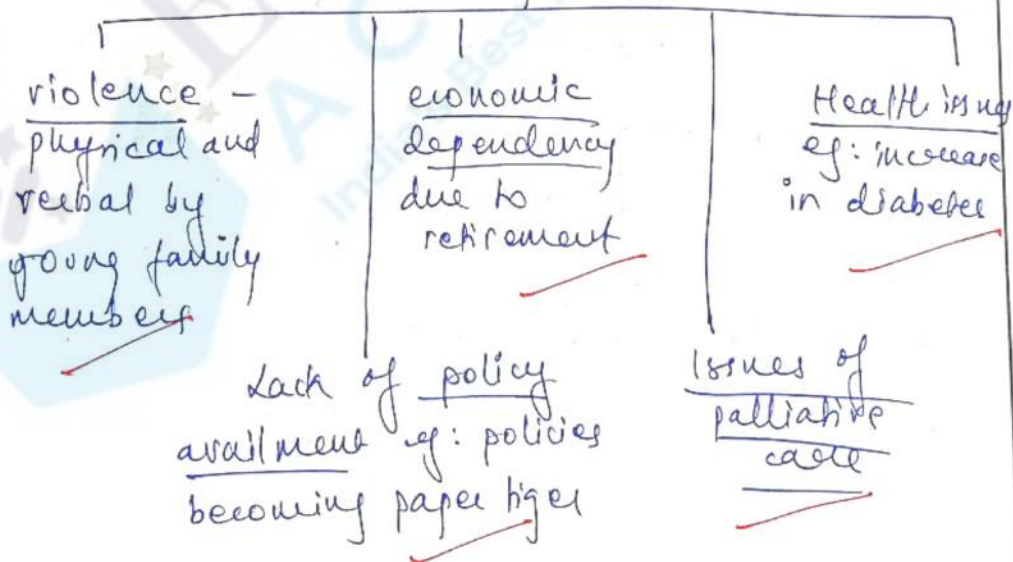 violence -
physical and
verbal by
young family
members
economic
dependency
due to
retirement
Health issues
eg: increase
in diabetes
Lack of policy
availment eg: policies
becoming paper tiger
Issues of
palliative
care